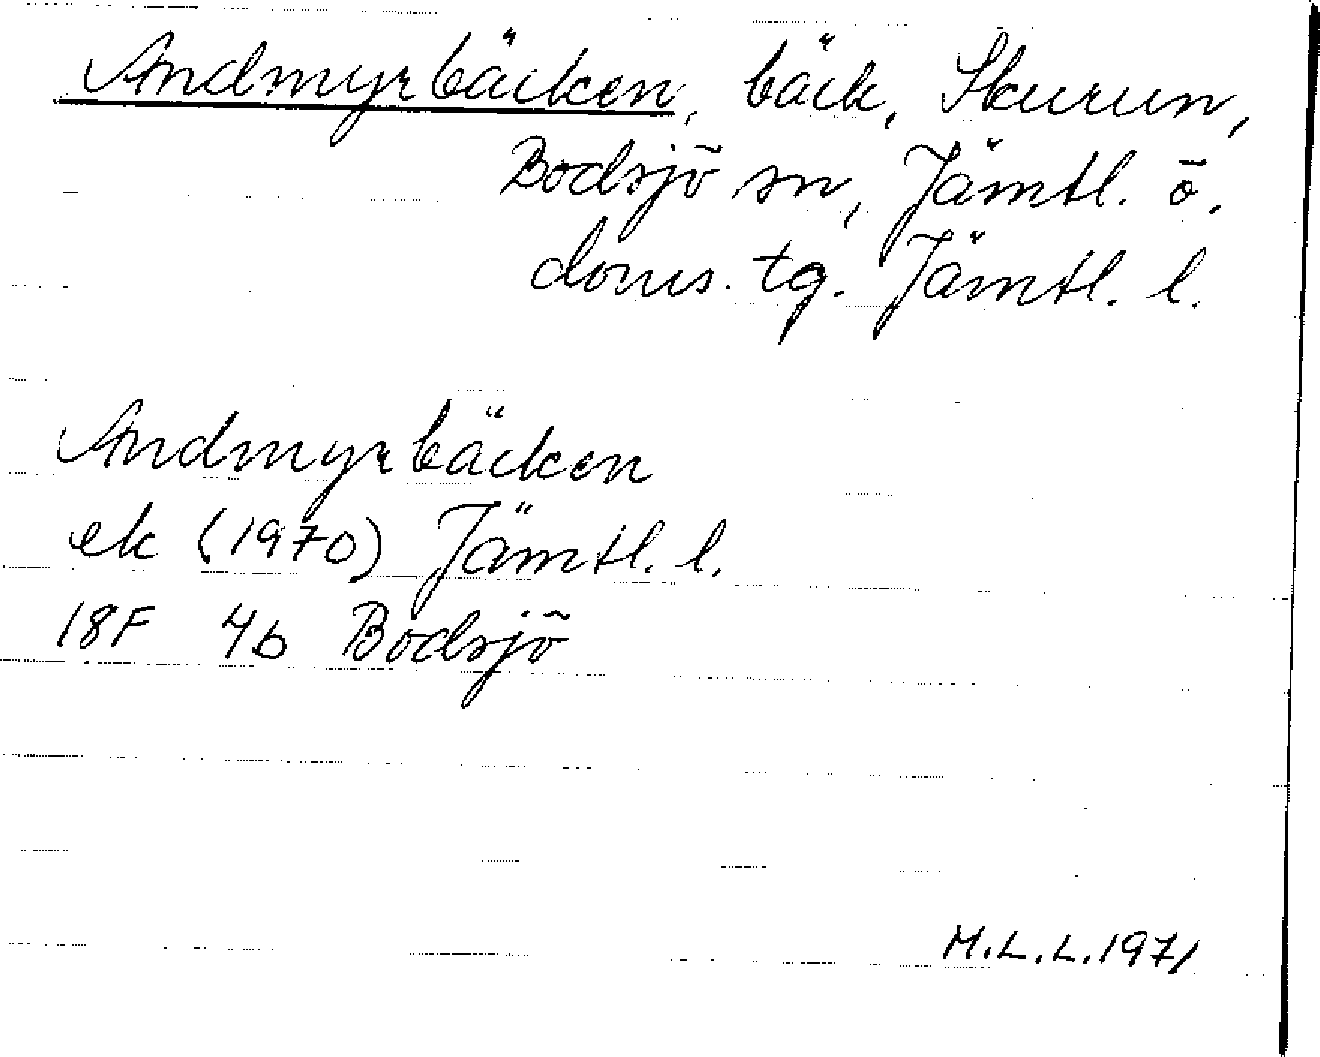 Andmyrbäcken, bäck, Skurun,
Bodsjö sn, Jämtl. ö.
doms. tg. Jämtl. l.
Andmyrbäcken
ek (1970) Jämtl. l.
18F 4b Bodsjö
M.L.L. 1971